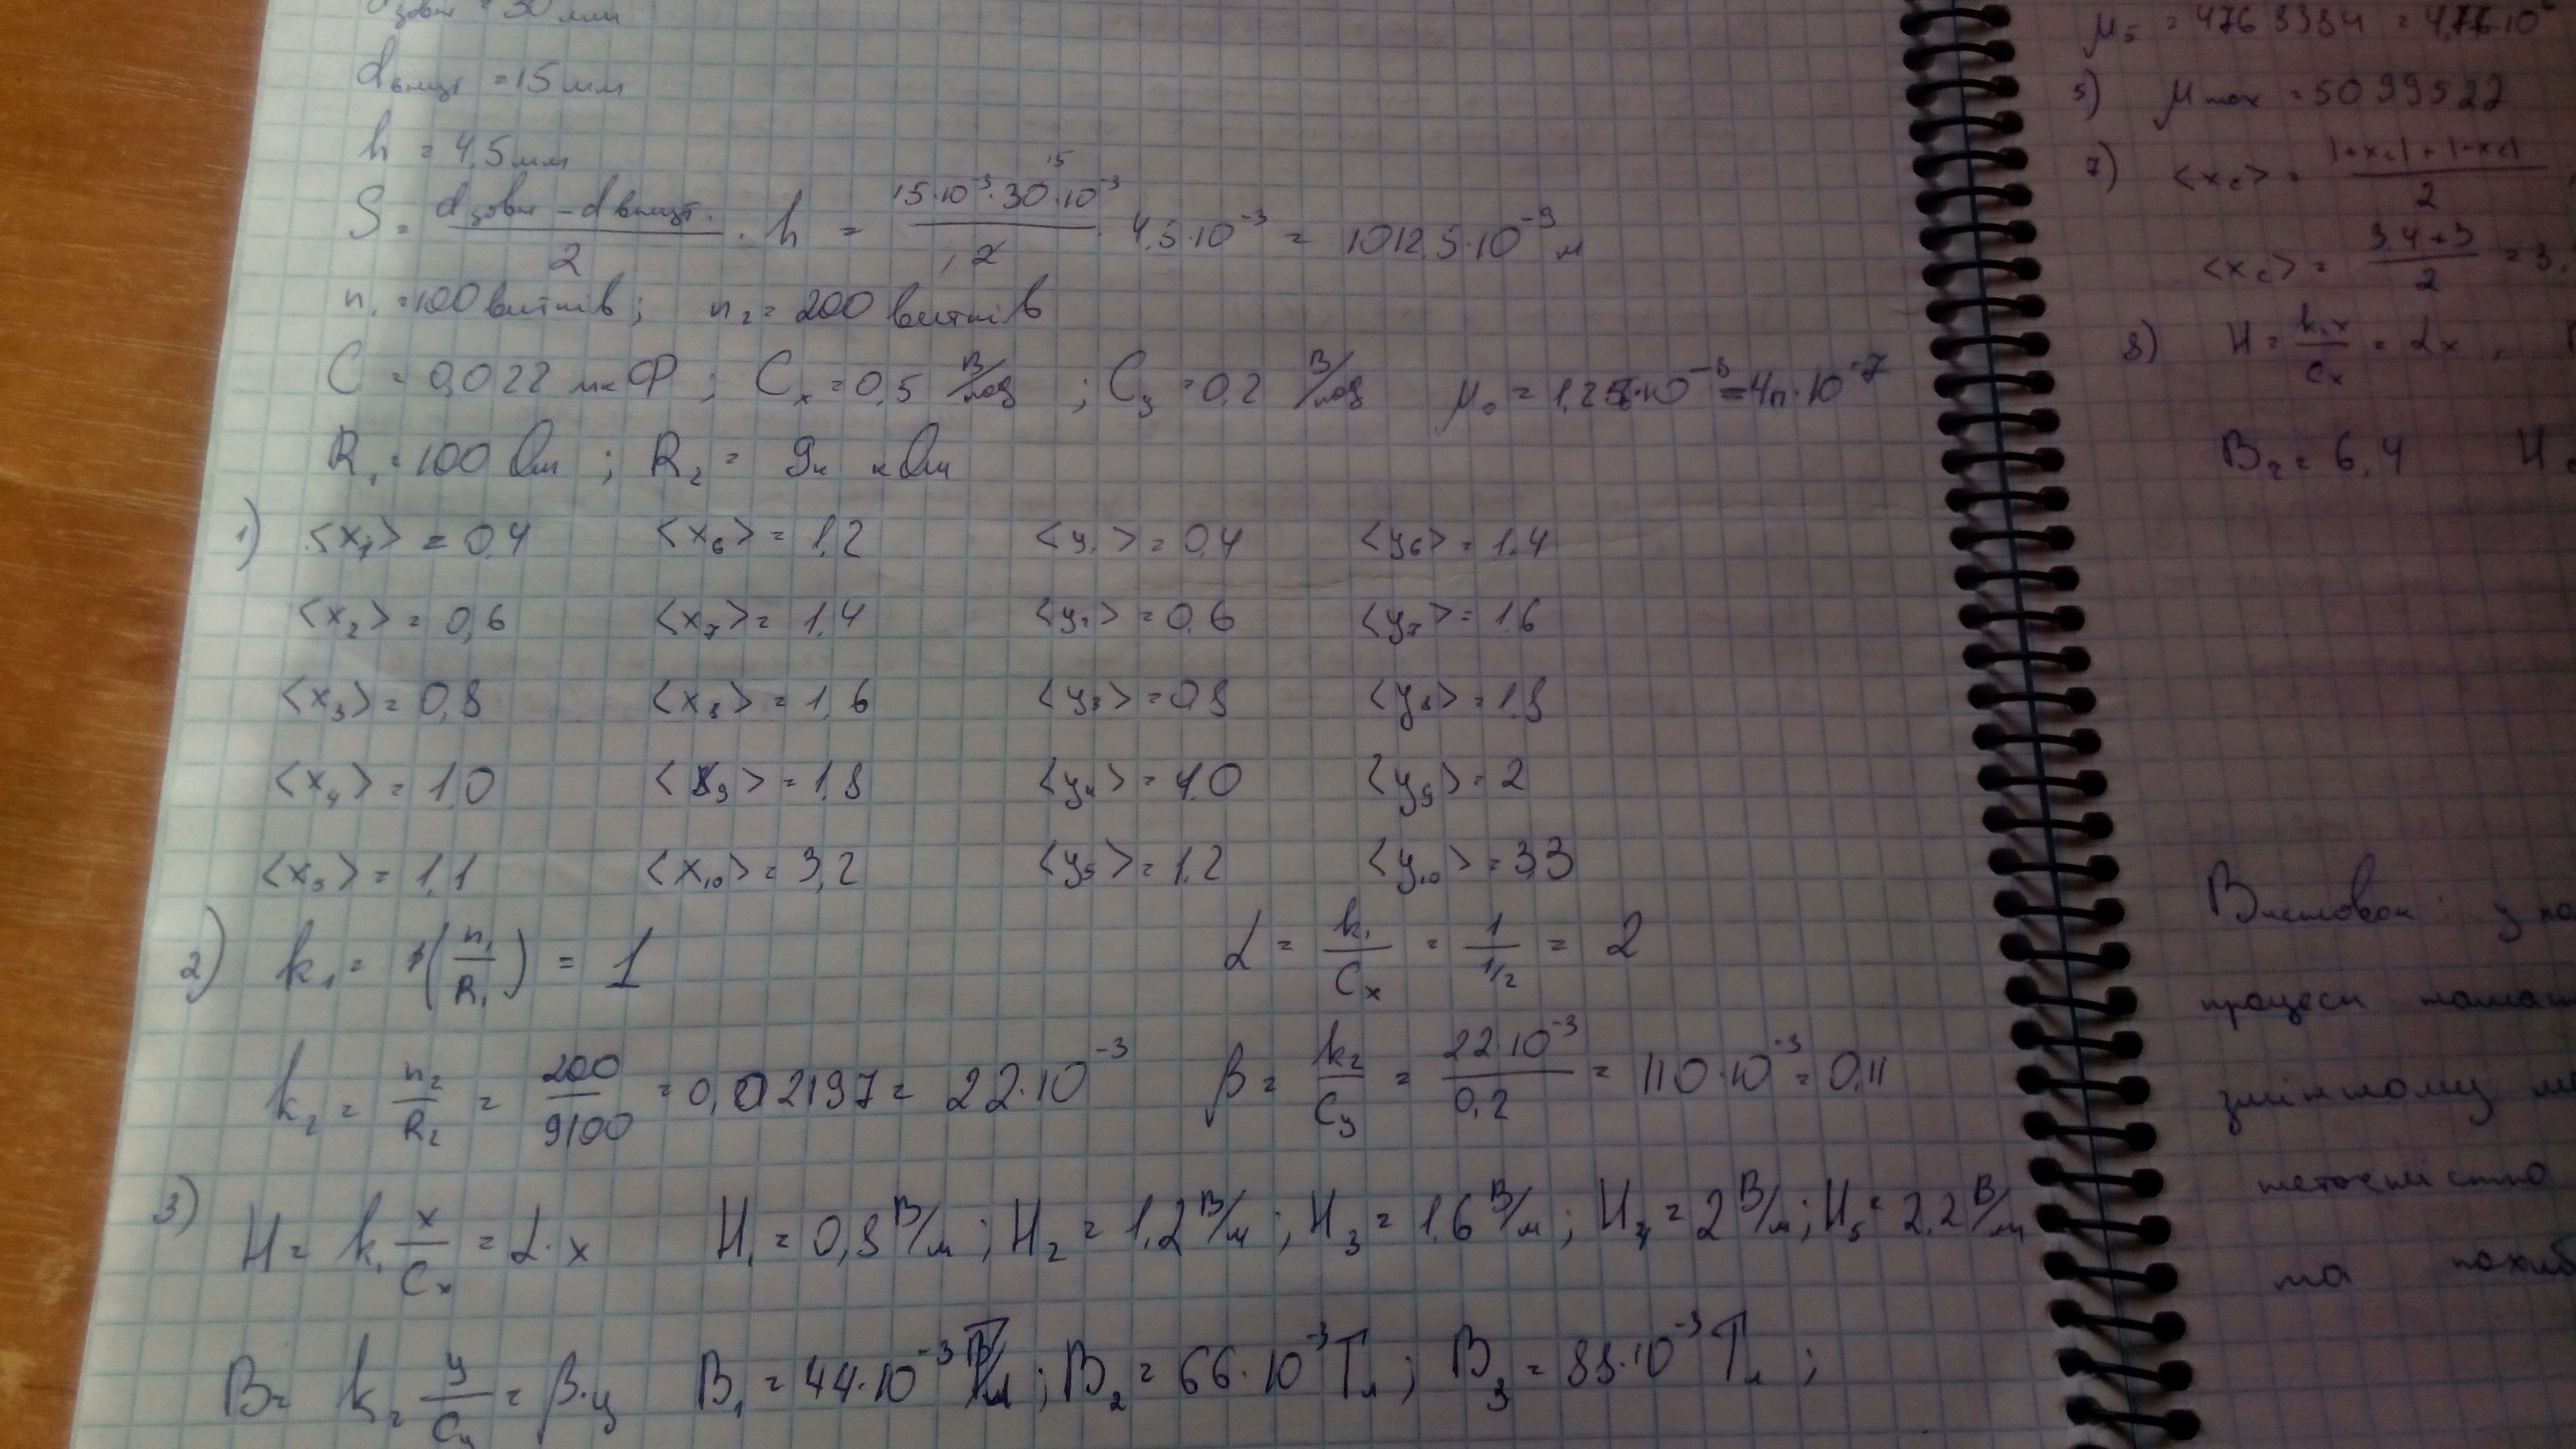 dзовн = 30 мм
dвнут = 15 мм
h = 4,5 мм
S = (dзовн - dвнут.)/2 · h = (15·10⁻³·30·10⁻³)/2 · 4,5·10⁻³ = 1012,5·10⁻⁹ м
15
n₁ = 100 витків ; n₂ = 200 витків
C = 0,022 мкФ ; Cx = 0,5 В/под ; Cy = 0,2 В/под μ₀ = 4π·10⁻⁷
R₁ = 100 Ом ; R₂ = кОм
1) <x₁> = 0,4 <x₆> = 1,2 <y₁> = 0,4 <y₆> = 1,4
<x₂> = 0,6 <x₇> = 1,4 <y₂> = 0,6 <y₇> = 1,6
<x₃> = 0,8 <x₈> = 1,6 <y₃> = 0,8 <y₈> = 1,8
<x₄> = 1,0 <x₉> = 1,8 <y₄> = 1,0 <y₉> = 2
<x₅> = 1,1 <x₁₀> = 3,2 <y₅> = 1,2 <y₁₀> = 3,3
2) k₁ = (n₁/R₁) = 1 α = k₁/Cx = 1/(1/2) = 2
k₂ = n₂/R₂ = 200/9100 = 0,02197 = 22·10⁻³ β = k₂/Cy = 22·10⁻³/0,2 = 110·10⁻³ = 0,11
3) H = k₁ x/Cx = α·x H₁ = 0,8 В/м ; H₂ = 1,2 В/м ; H₃ = 1,6 В/м ; H₄ = 2 В/м ; H₅ = 2,2 В/м
B = k₂ y/Cy = β·y B₁ = 44·10⁻³ Тл ; B₂ = 66·10⁻³ Тл ; B₃ = 88·10⁻³ Тл ;
μ₅ = 4768384 = 4,76·10⁶
5) μmax = 5099522
7) <xc> = (|+xc| + |-xc|)/2
<xc> = (3,4+3)/2 = 3,
8) H = k₁x/Cx = αx ,
B₂ = 6,4 H
Висновок : у
процеси
змінному
та